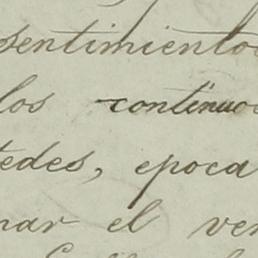 sentimientos
los continuo
tedes, epoca
nar el ver